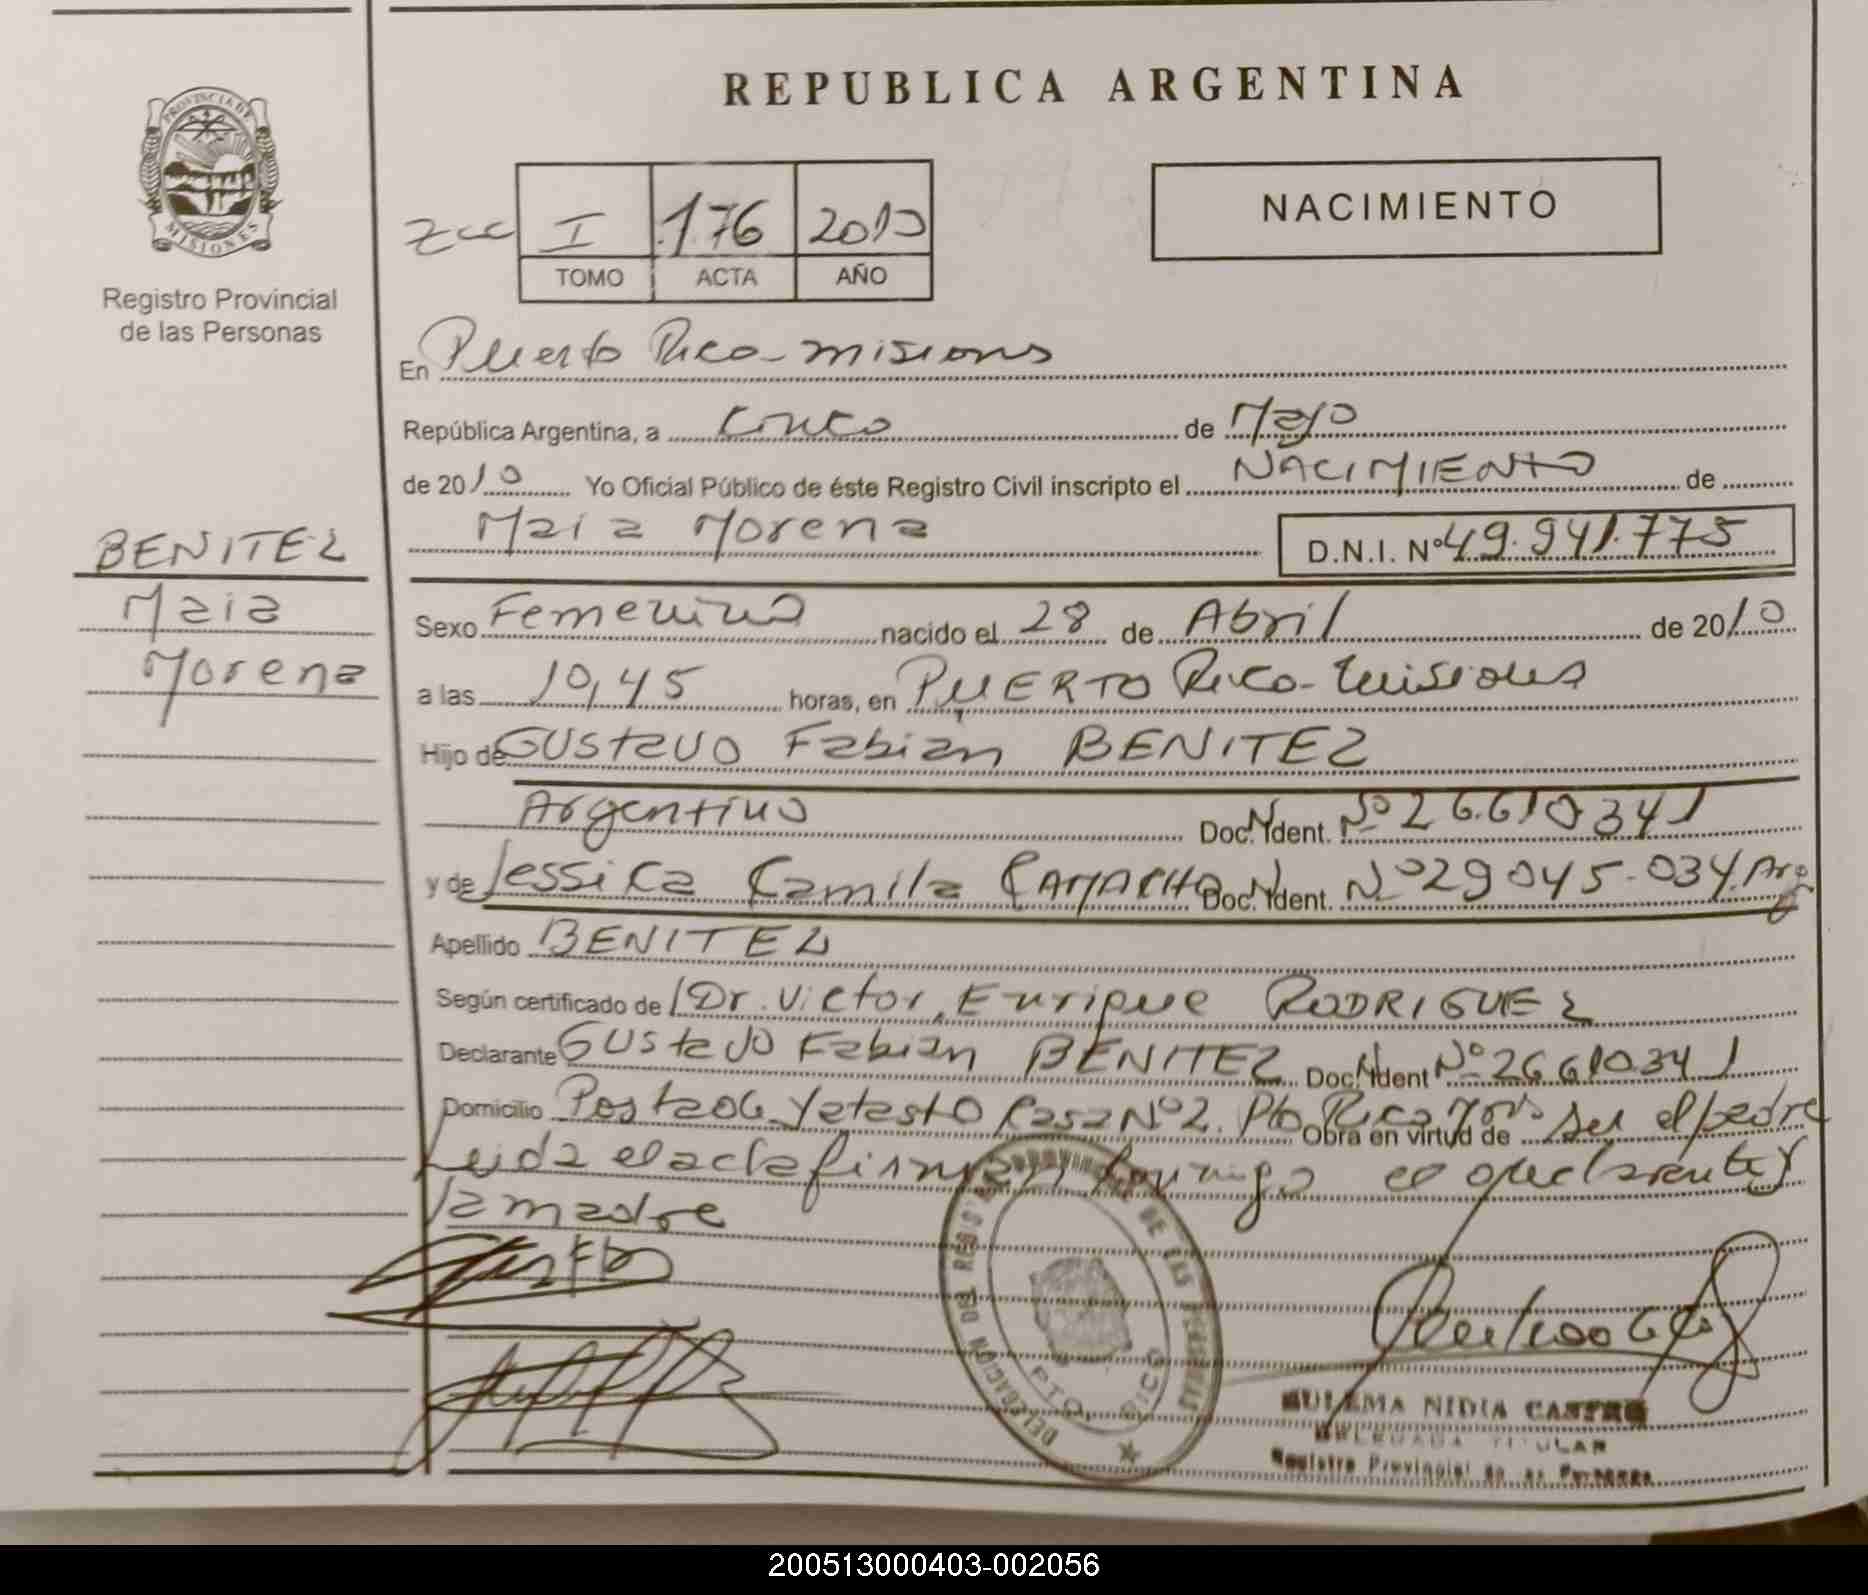 REPUBLICA ARGENTINA
PROVINCIA DE
MISIONES
Registro Provincial
de las Personas
I 176 2010
TOMO ACTA AÑO
NACIMIENTO
En Puerto Rico - misiones
República Argentina, a Cinco de Mayo
de 2010 Yo Oficial Público de éste Registro Civil inscripto el NACIMIENTO de
Maia Morena D.N.I. Nº 49.941.775
BENITEZ
Maia
Morena
Sexo Femenino nacido el 28 de Abril de 2010
a las 10,45 horas, en PUERTO Rico - Misiones
Hijo de Gustavo Fabian BENITEZ
Argentino Doc. N. Ident. Nº 26.610341
y de Jessica Camila CAMACHO Doc. N. Ident. Nº 29045.034. Arg
Apellido BENITEZ
Según certificado de Dr. Victor Enrique RODRIGUEZ
Declarante Gustavo Fabian BENITEZ Doc. N. Ident Nº 26610341
Domicilio Posta de Yatasto Casa Nº 2. Pto Rico Mnes Obra en virtud de ser el padre
Leida el acta firman conmigo el declarante y
la madre
DELEGACION DEL REGISTRO PROVINCIAL DE LAS PERSONAS
PTO. RICO
ZULEMA NIDIA CASTRO
DELEGADA TITULAR
Registro Provincial de las Personas
200513000403-002056